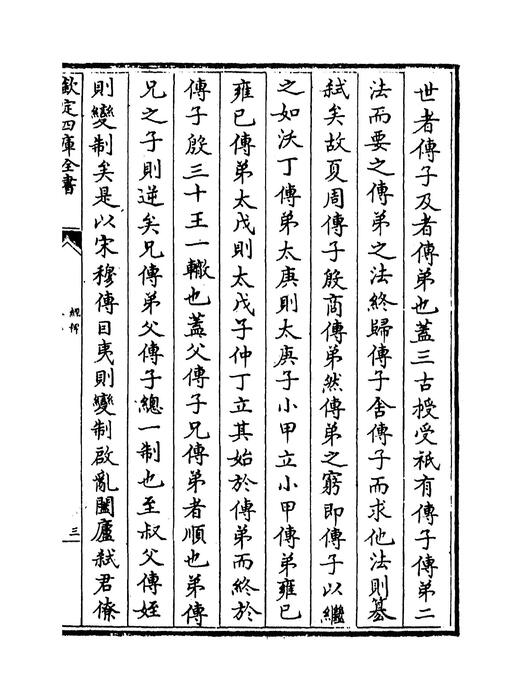 世者傳子及者傳弟也蓋三古授受祇有傳子傳弟二
法而要之傳弟之法終歸傳子舍傳子而求他法則篡
弑矣故夏周傳子殷商傳弟然傳弟之窮即傳子以繼
之如沃丁傳弟太庚則太庚子小甲立小甲傳弟雍已
雍已傳弟太戊則太戊子仲丁立其始於傳弟而終於
傳子殷三十王一轍也蓋父傳子兄傳弟者順也弟傳
兄之子則逆矣兄傳弟父傳子總一制也至叔父傳姪
則變制矣是以宋穆傳曰夷則變制啟亂闔廬弑君僚
欽定四庫全書
經稗
三